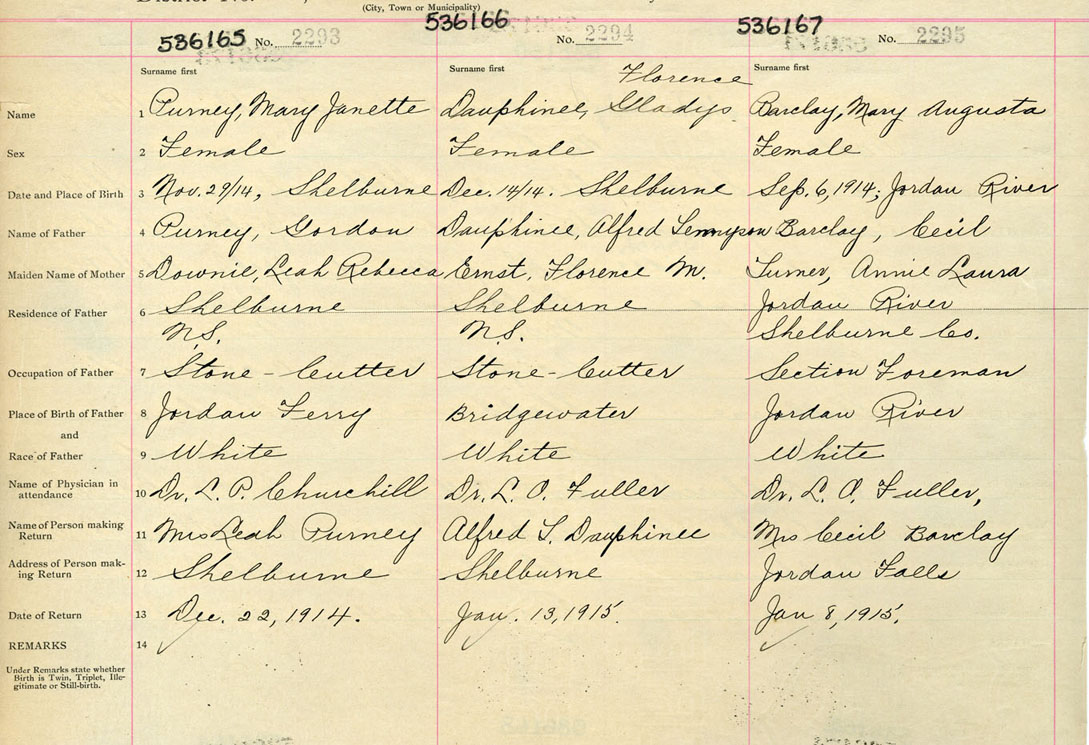 District No.
(City, Town or Municipality)
536165 No. 2293
536166 No. 2294
536167 No. 2295
Surname first Surname first Surname first
Florence
Name 1 Purney, Mary Janette Dauphinee, Gladys Barclay, Mary Augusta
Sex 2 Female Female Female
Date and Place of Birth 3 Nov. 29/14, Shelburne Dec. 14/14. Shelburne Sep. 6, 1914; Jordan River
Name of Father 4 Purney, Gordon Dauphinee, Alfred Tennyson Barclay, Cecil
Maiden Name of Mother 5 Downie, Leah Rebecca Ernst, Florence M. Turner, Annie Laura
Residence of Father 6 Shelburne Shelburne Jordan River
N.S. N.S. Shelburne Co.
Occupation of Father 7 Stone-Cutter Stone-Cutter Section Foreman
Place of Birth of Father 8 Jordan Ferry Bridgewater Jordan River
and
Race of Father 9 White White White
Name of Physician in
attendance 10 Dr. L. P. Churchill Dr. L. O. Fuller Dr. L. O. Fuller,
Name of Person making
Return 11 Mrs Leah Purney Alfred T. Dauphinee Mrs Cecil Barclay
Address of Person mak-
ing Return 12 Shelburne Shelburne Jordan Falls
Date of Return 13 Dec. 22, 1914. Jan. 13, 1915. Jan 8, 1915.
REMARKS 14
Under Remarks state whether
Birth is Twin, Triplet, Ille-
gitimate or Still-birth.